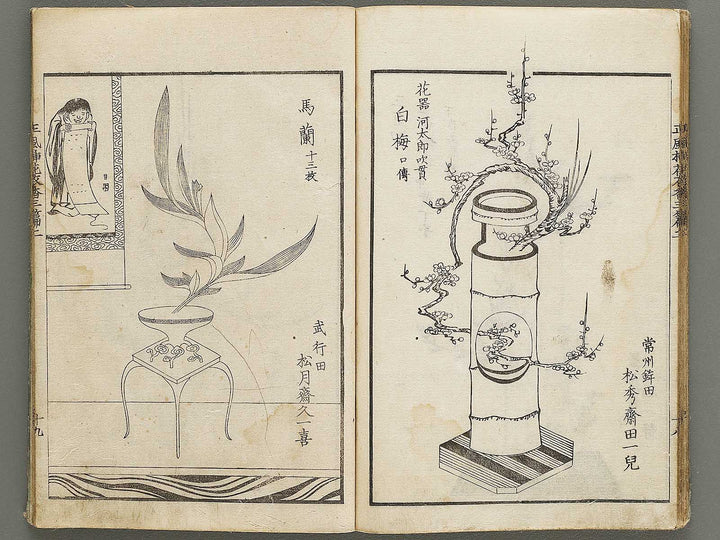 花器 河太郎吹貫
白梅 口傳
常州鉾田
松秀齋田一兒
馬蘭 十三枚
武行田
松月齋久一喜
十八
十九